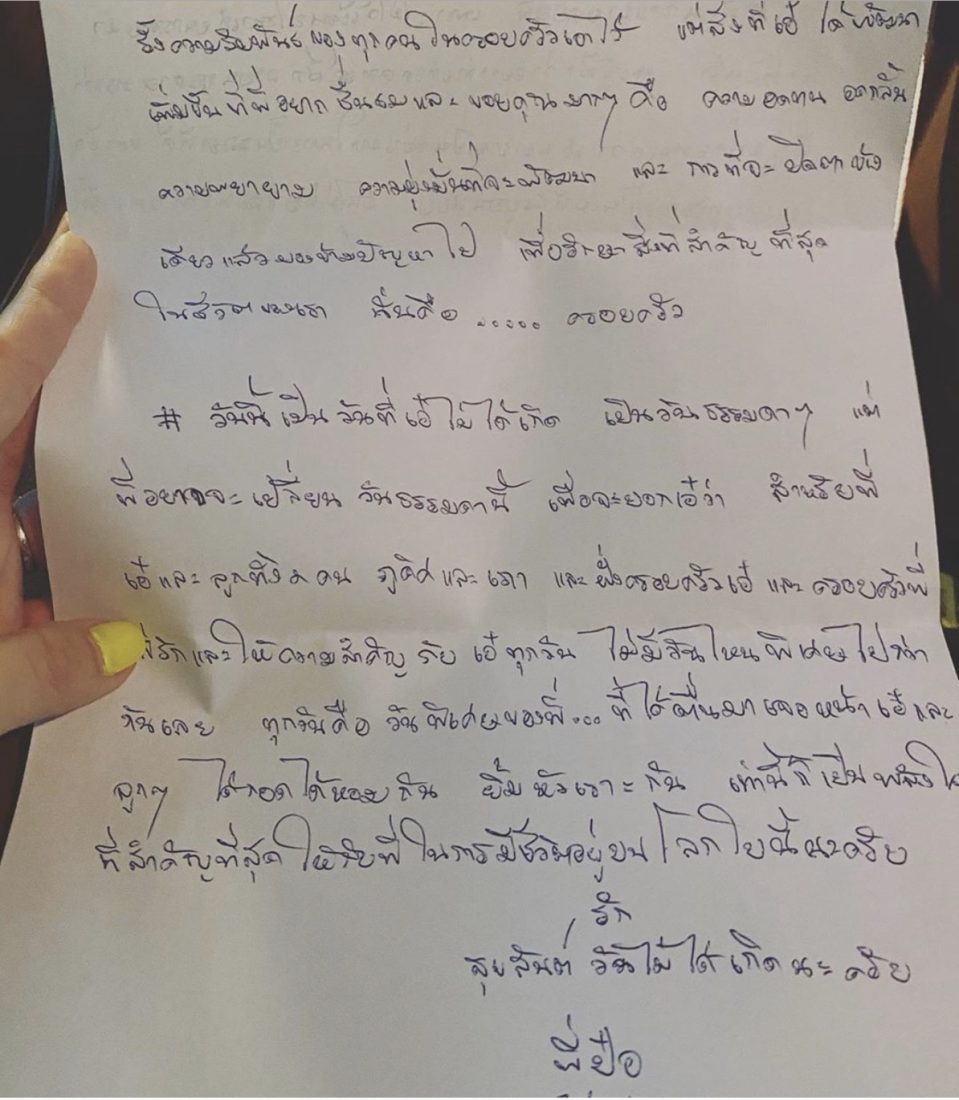 ซึ่งความสัมพันธ์ของทุกคนในครอบครัวเอาไว้ แต่สิ่งที่เอ๋ ได้พัฒนา
เพิ่มขึ้น ที่พี่อยากชื่นชมและขอบคุณมากๆ คือ ความอดทน อดกลั้น
ความพยายาม ความมุ่งมั่นที่จะพัฒนา และ การที่จะปิดตาข้าง
เดียวแล้วมองข้ามปัญหาไป เพื่อรักษาสิ่งที่สำคัญที่สุด
ในชีวิตของเรา นั่นคือ ..... ครอบครัว
# วันนี้เป็นวันที่เอ๋ไม่ได้เกิด เป็นวันธรรมดาๆ แต่
พี่อยากจะเปลี่ยนวันธรรมดานี้ เพื่อจะบอกเอ๋ว่า สำหรับพี่
เอ๋และลูกทั้ง ๒ คน ภูดิศและเภา และฝั่งครอบครัวเอ๋ และครอบครัวพี่
พี่รักและให้ความสำคัญกับเอ๋ทุกวัน ไม่มีวันไหนพิเศษไปกว่า
กันเลย ทุกวันคือวันพิเศษของพี่... ที่ได้ตื่นมาเจอหน้าเอ๋และ
ลูกๆ ได้กอดได้หอมกัน ยิ้มหัวเราะกัน เท่านี้ก็เป็น
ที่สำคัญที่สุดให้กับพี่ในการมีชีวิตอยู่บนโลกใบนี้นะครับ
รัก
สุขสันต์วันไม่ได้เกิดนะครับ
พี่ป๋อ